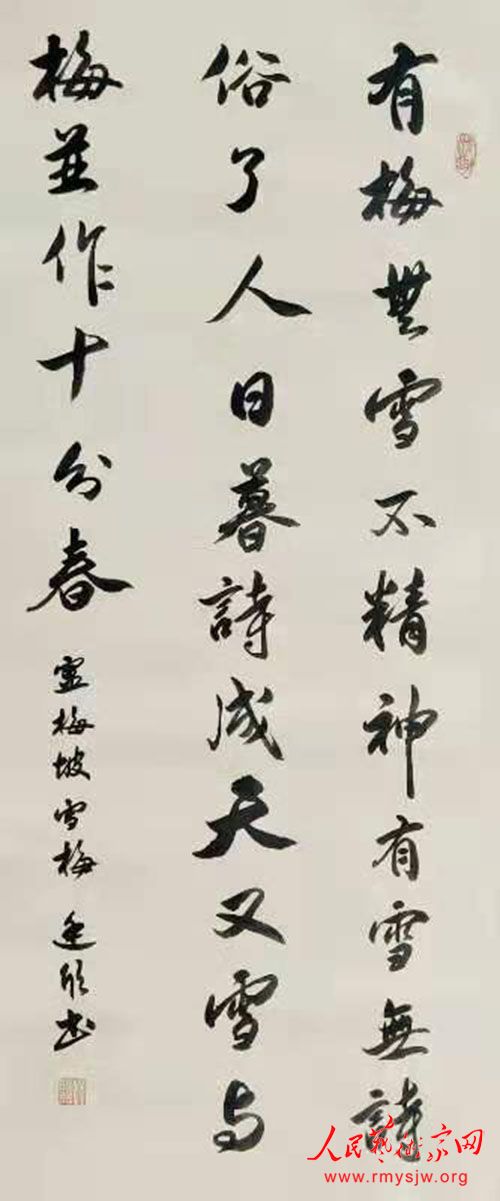 有梅無雪不精神有雪無詩
俗了人日暮詩成天又雪与
梅並作十分春
盧梅坡雪梅 書
人民艺术家网
www.rmysjw.org